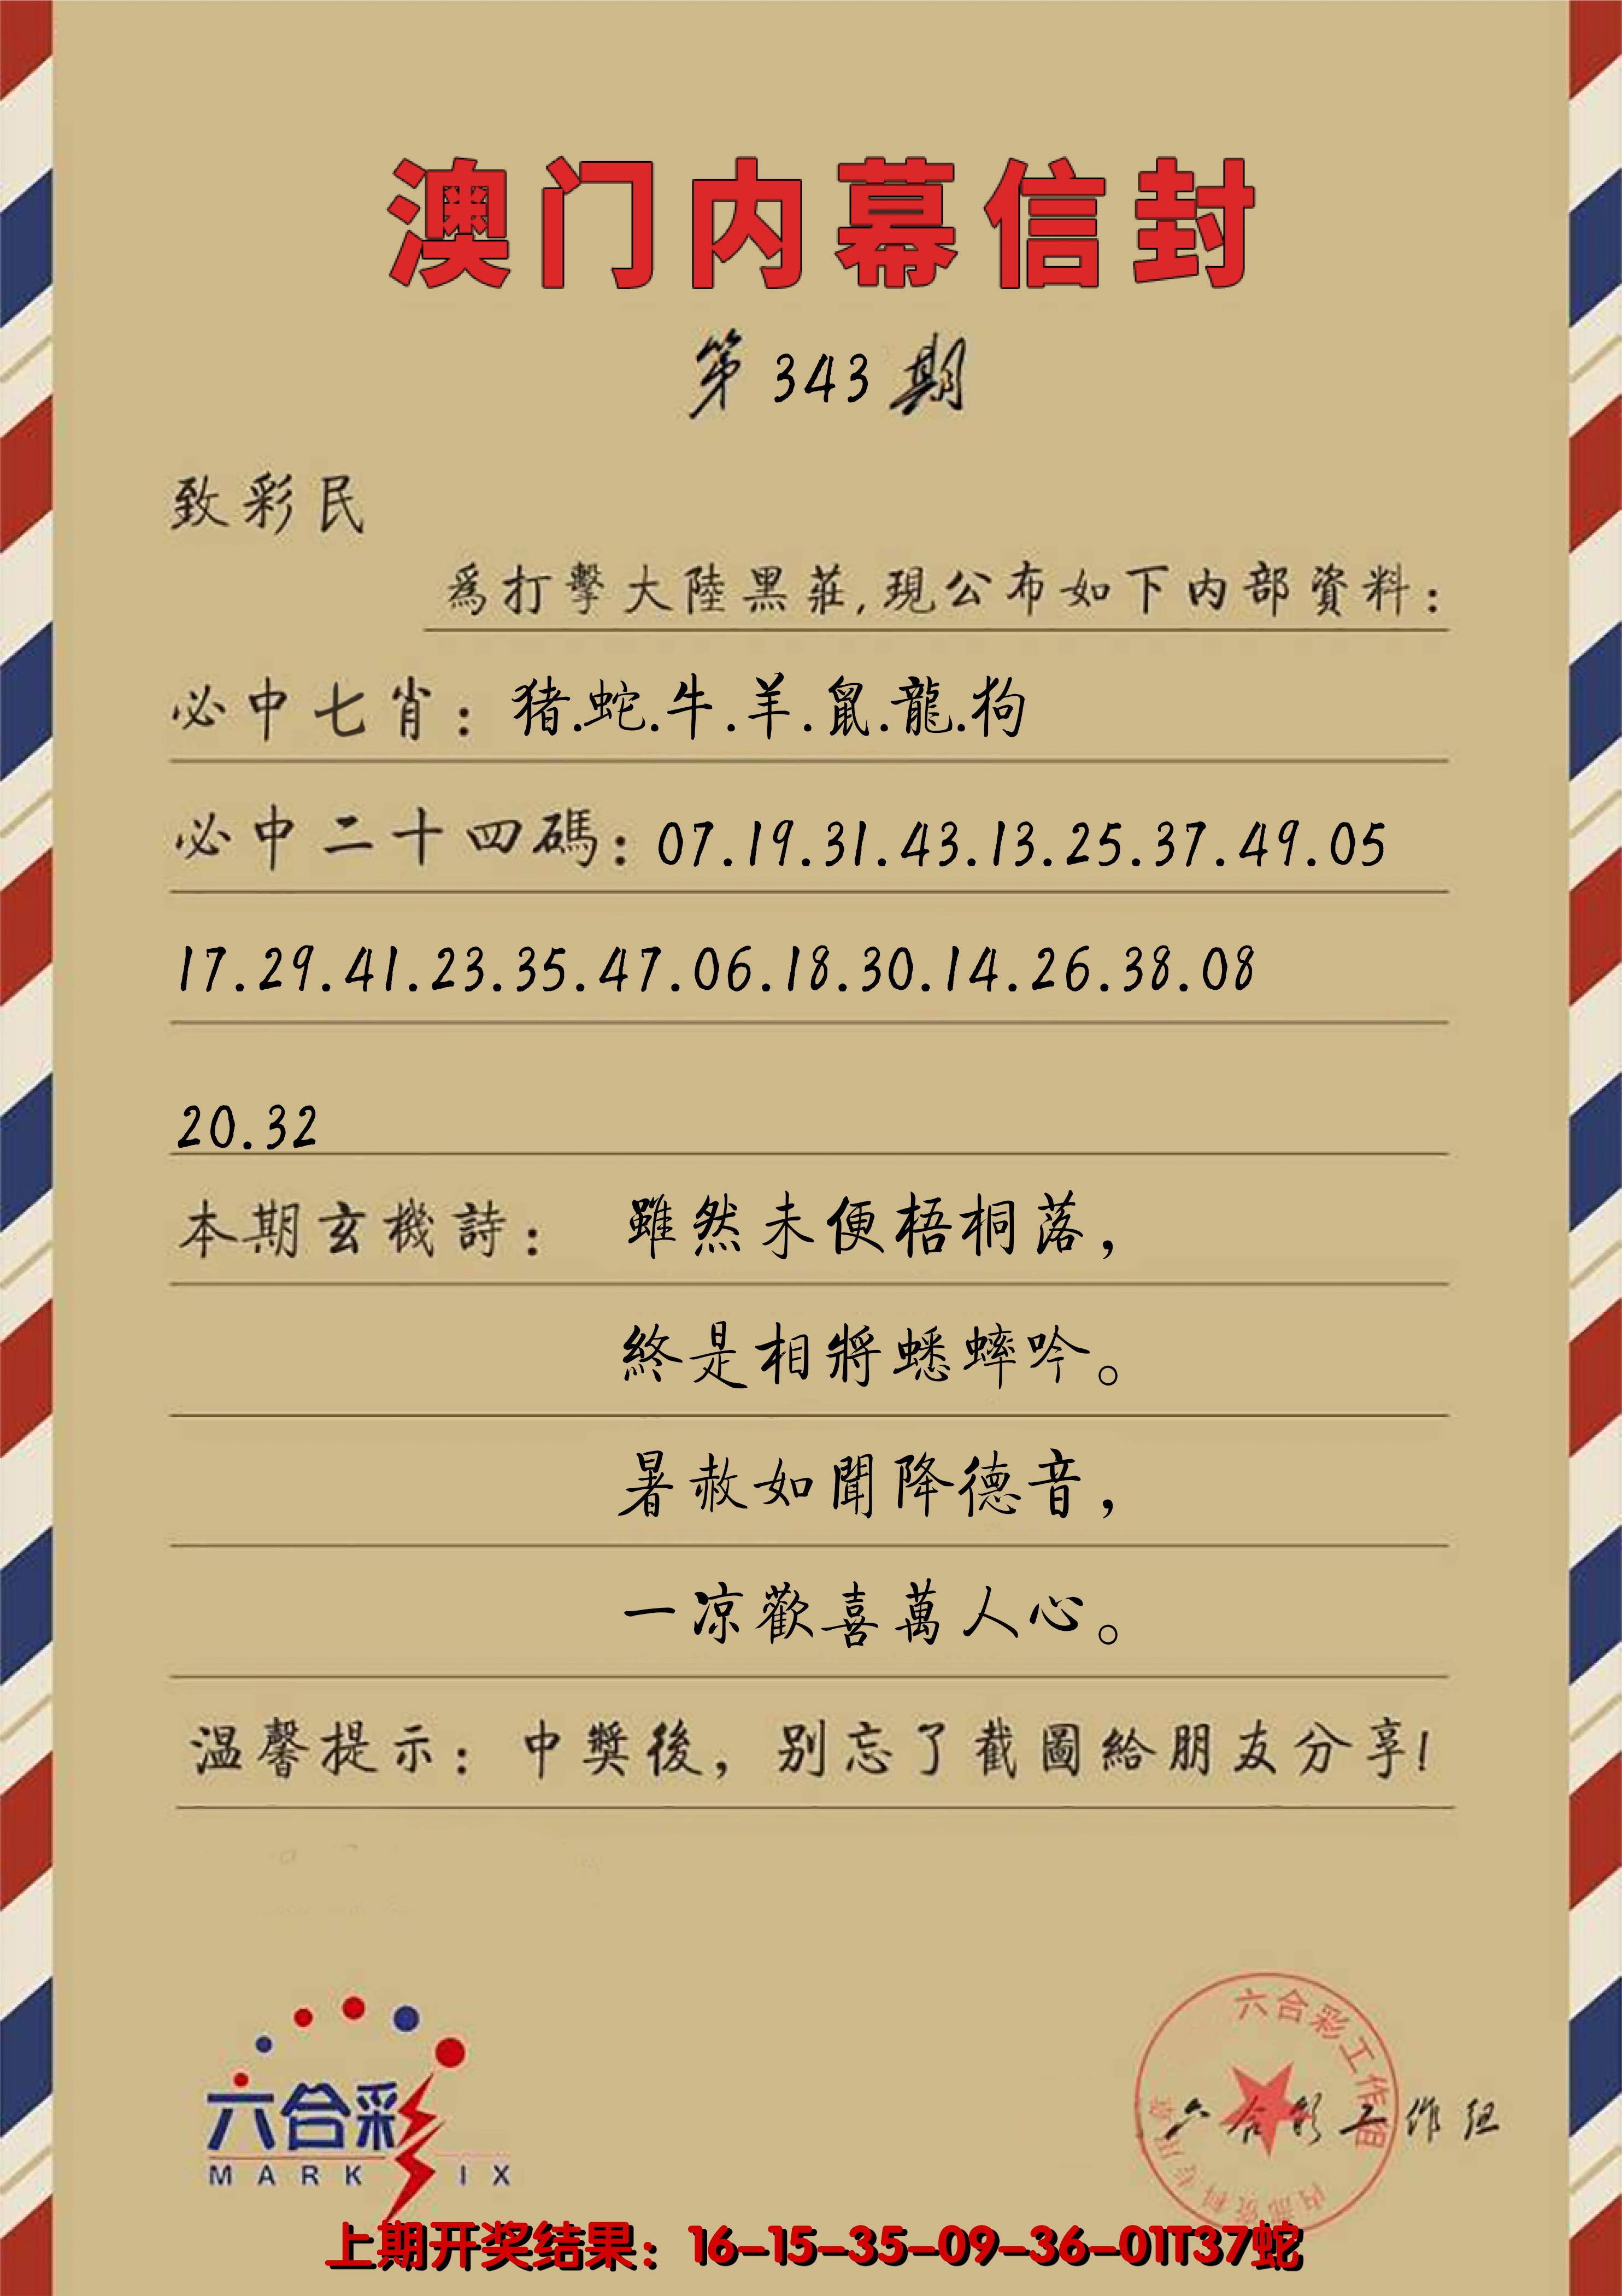 澳门内幕信封
第343期
致彩民
為打擊大陸黑莊,現公布如下内部資料:
必中七肖: 猪.蛇.牛.羊.鼠.龍.狗
必中二十四碼: 07.19.31.43.13.25.37.49.05
17.29.41.23.35.47.06.18.30.14.26.38.08
20.32
本期玄機詩: 雖然未便梧桐落,
終是相將蟋蟀吟。
暑赦如聞降德音,
一凉歡喜萬人心。
温馨提示: 中獎後, 别忘了截圖給朋友分享!
六合彩
MARK IX
六合彩工作组
内部资料专用章
六合彩工作组
上期开奖结果: 16-15-35-09-36-01T37蛇